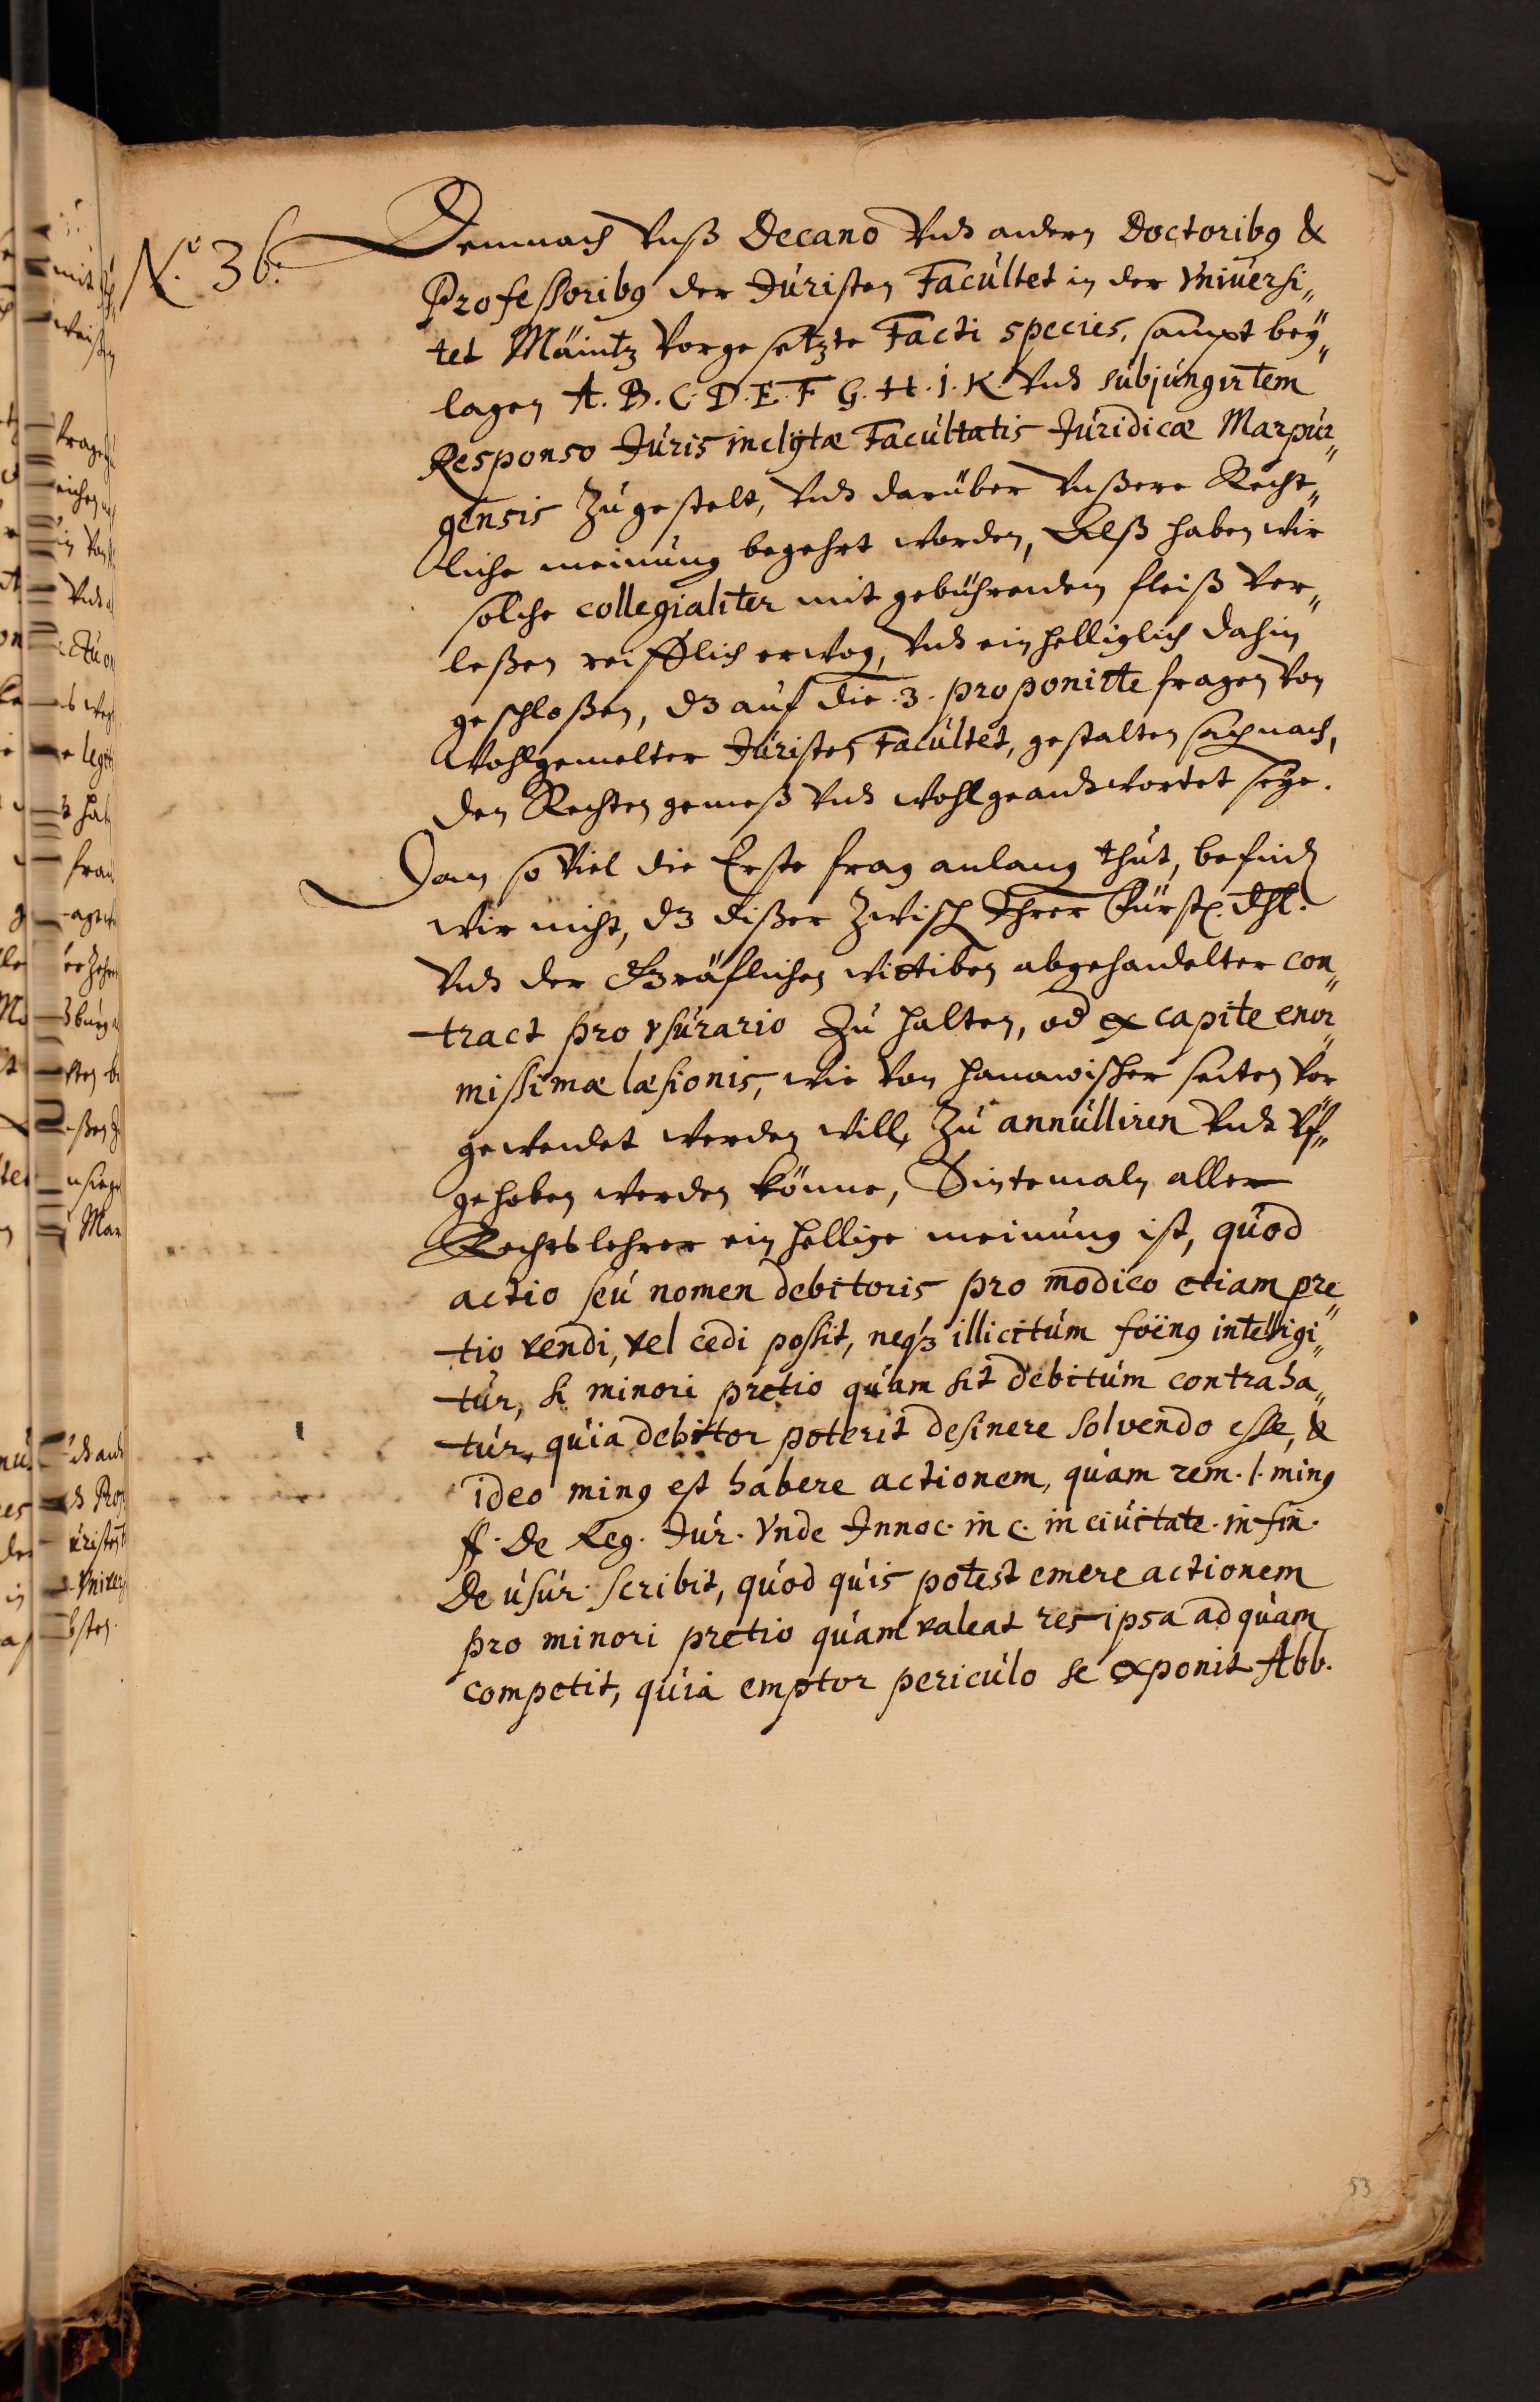 N.o 36.
Demnach Unß Decano Und andern Doctoribg &
Professoribg der Juristen Facultet in der Vniversi„
tet Mäintz Vorgesetzte Facti species, sampt bey„
lagen A. B. C. D. E. F G. H. I. K. Und subjungirtem
Responso Juris inclÿtæ Facultatis Juridicæ Marpur„
gensis Zugestelt, Und darüber Unßere Recht„
liche meinung begehrt worden, Alß haben wir
solche collegialiter mit gebührendem fleiß Ver„
leßen reifflich erwog, Und einhelliglich dahin
geschloßen, dz auf die .3. proponirte fragen Von
Wohlgemelter Juristen Facultet, gestalten sachnach,
den Rechten gemeß Und wohlgeandwortet seye.
Dan so Viel die Erste frag anlang thut, befind
wir nicht, dz dißer Zwisch Ihrer Fürstl. Dhl.
Und der Gräflichen wittiben abgehandelter con„
tract pro vsurario Zu halten, od ex capite enor„
missimæ læsionis, wie Von hanawischer seiten Vor
gewendet werden will, Zu annulliren Und Uf„
gehoben werden könne, Sintemaln aller
Rechtslehrer einhellige meinung ist, quod
actio seu nomen debitoris pro modico etiam pre„
tio vendi, vel cedi possit, neqз illicitum foeng intelligi„
tur, si minori pretio quam sit debitum contraha„
tur, quia debitor poterit desinere solvendo esse, &
ideo ming est habere actionem, quam rem. l. ming
ff. de Reg. Jur. Vnde Innoc. in c. in civitate. in fin.
de usur. scribit, quod quis potest emere actionem
pro minori pretio quam valeat res ipsa ad quam
competit, quia emptor periculo se exponit Abb.
53